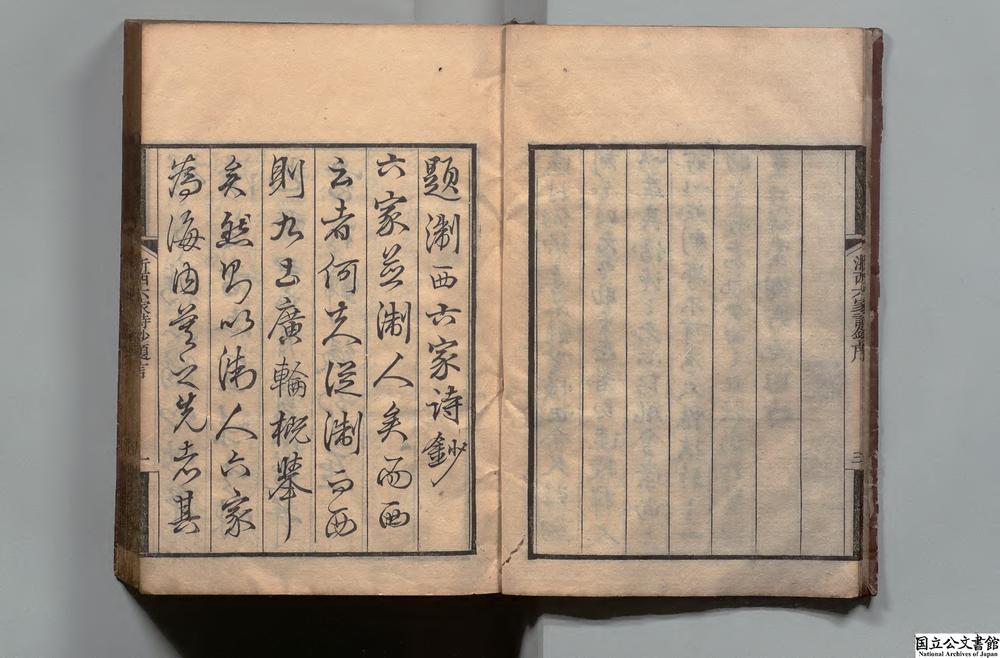 浙西六家詩鈔序
三
題淛西六家詩鈔
六家並淛人矣而西
云者何夫從淛而西
則九土廣輪概舉
矣然則以淛人六家
為海內莫之先者其
浙西六家詩鈔題言
一
国立公文書館
National Archives of Japan